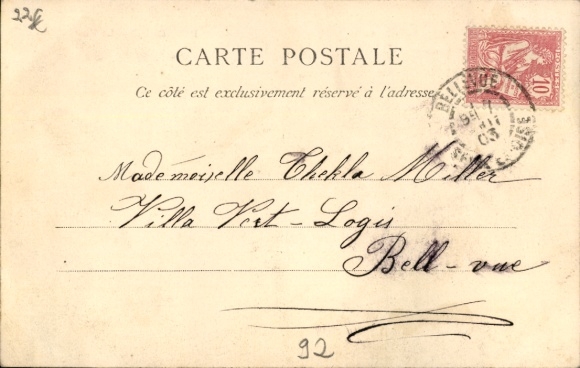 22
CARTE POSTALE
Ce côté est exclusivement réservé à l'adresse
10
BELLEVUE
03
Mademoiselle Thekla Miller
Villa Vert-Logis
Bell-vue
92